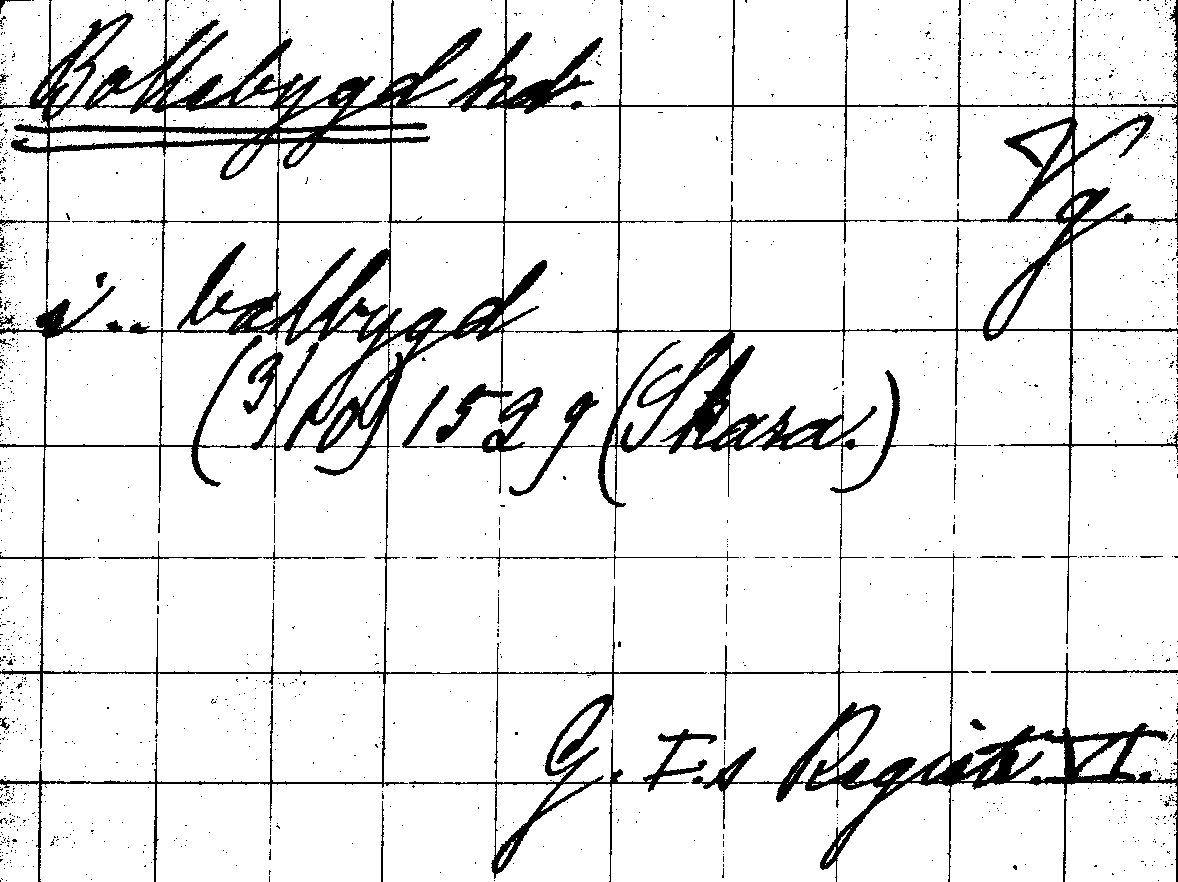 Bollebygd hd.
Vg.
i .. balbygd
(3/10) 1529 (Skara.)
G. I.s Registr. VI.